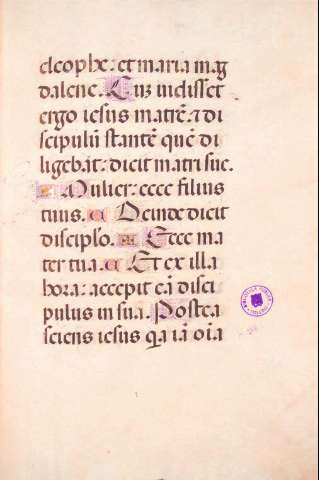 cleophe: et maria mag
dalene. Cuz uidisset
ergo iesus matrē: ⁊ di
scipulū stantē quē di
ligebat: dicit matri sue.
Mulier: ecce filius
tuus. Deinde dicit
disciplo. Ecce ma
ter tua. Et ex illa
hora: accepit eā disci
pulus in sua. Postea
sciens iesus qa iā oīa